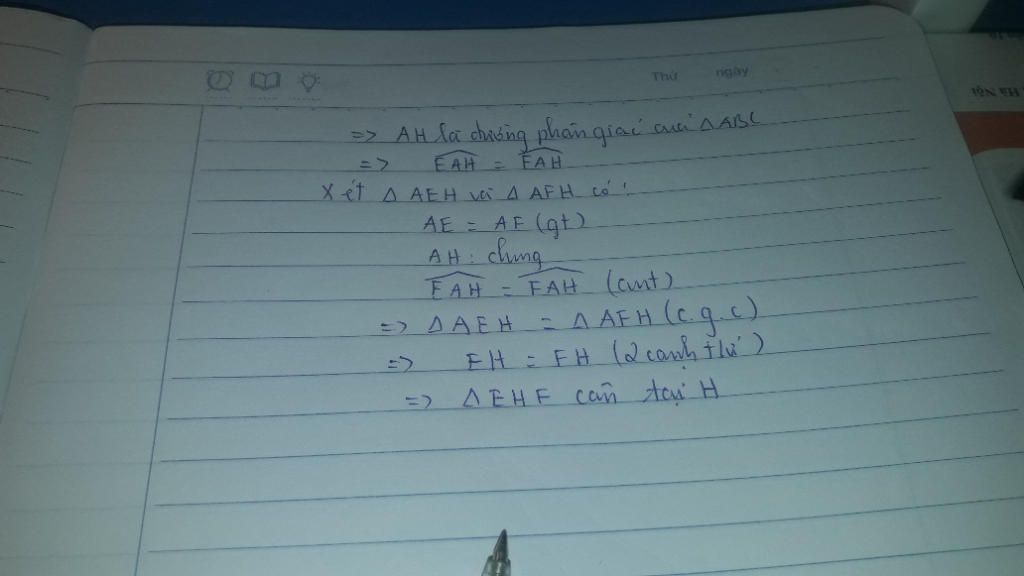 Thứ ngày
=> AH là đường phân giác của ΔABC
=> EAH = FAH
Xét Δ AEH và Δ AFH có:
AE = AF (gt)
AH: chung
EAH = FAH (cmt)
=> ΔAEH = ΔAFH (c.g.c)
=> EH = FH (2 cạnh t/ứ)
=> ΔEHF cân tại H